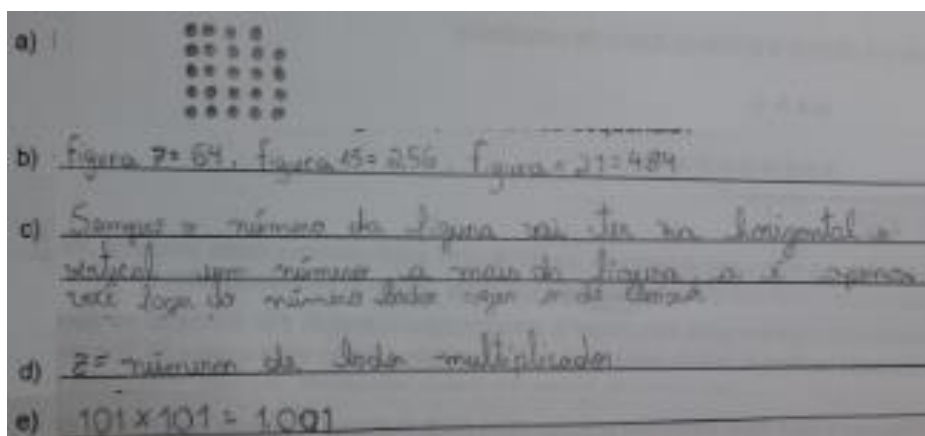 a)
b) figura 7= 64, figura 15= 256, figura = 21= 484
c) Sempre o número da figura vai ter na horizontal e
vertical um número a mais da figura, a é apenas
você do número lados
d) z= números de lados multiplicados
e) 101 x 101 = 1.001